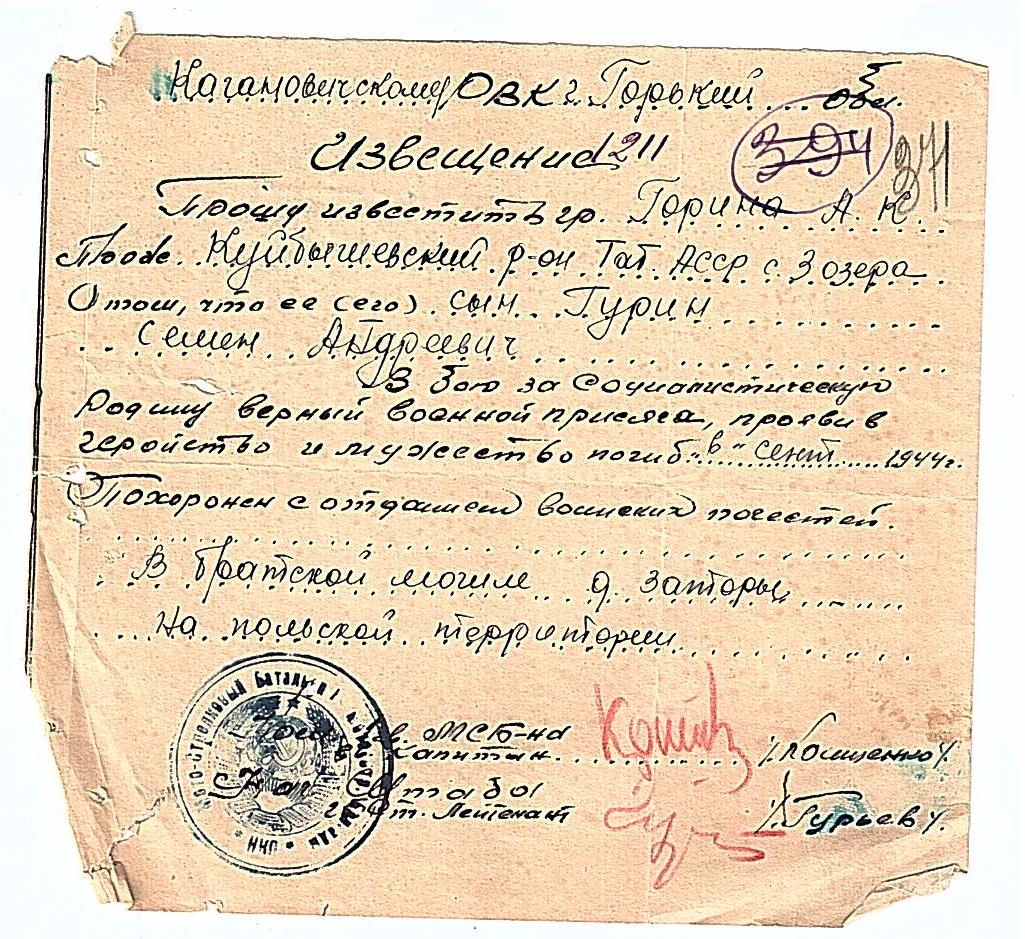 Кагановичскому ОВК г. Горький обл.
394
371
Извещение 1211
Прошу известить гр. Горина А. К.
Куйбышевский р-он Тат. Асср с. 3 озера
О том, что ее (его) сын Гурин
Семен Андреевич
В бою за Социалистическую
Родину верный военной присяга, проявив
геройство и мужество погиб "в" сент 1944г.
Похоронен с отданием воинских почестей.
В братской могиле д. Заторы
на польской территории
К-р МСБ-на
Капитан /Кощиенко/
Нач. Штаба
Ст. Лейтенант /Гурьев/
стрелковый батальон
НКО